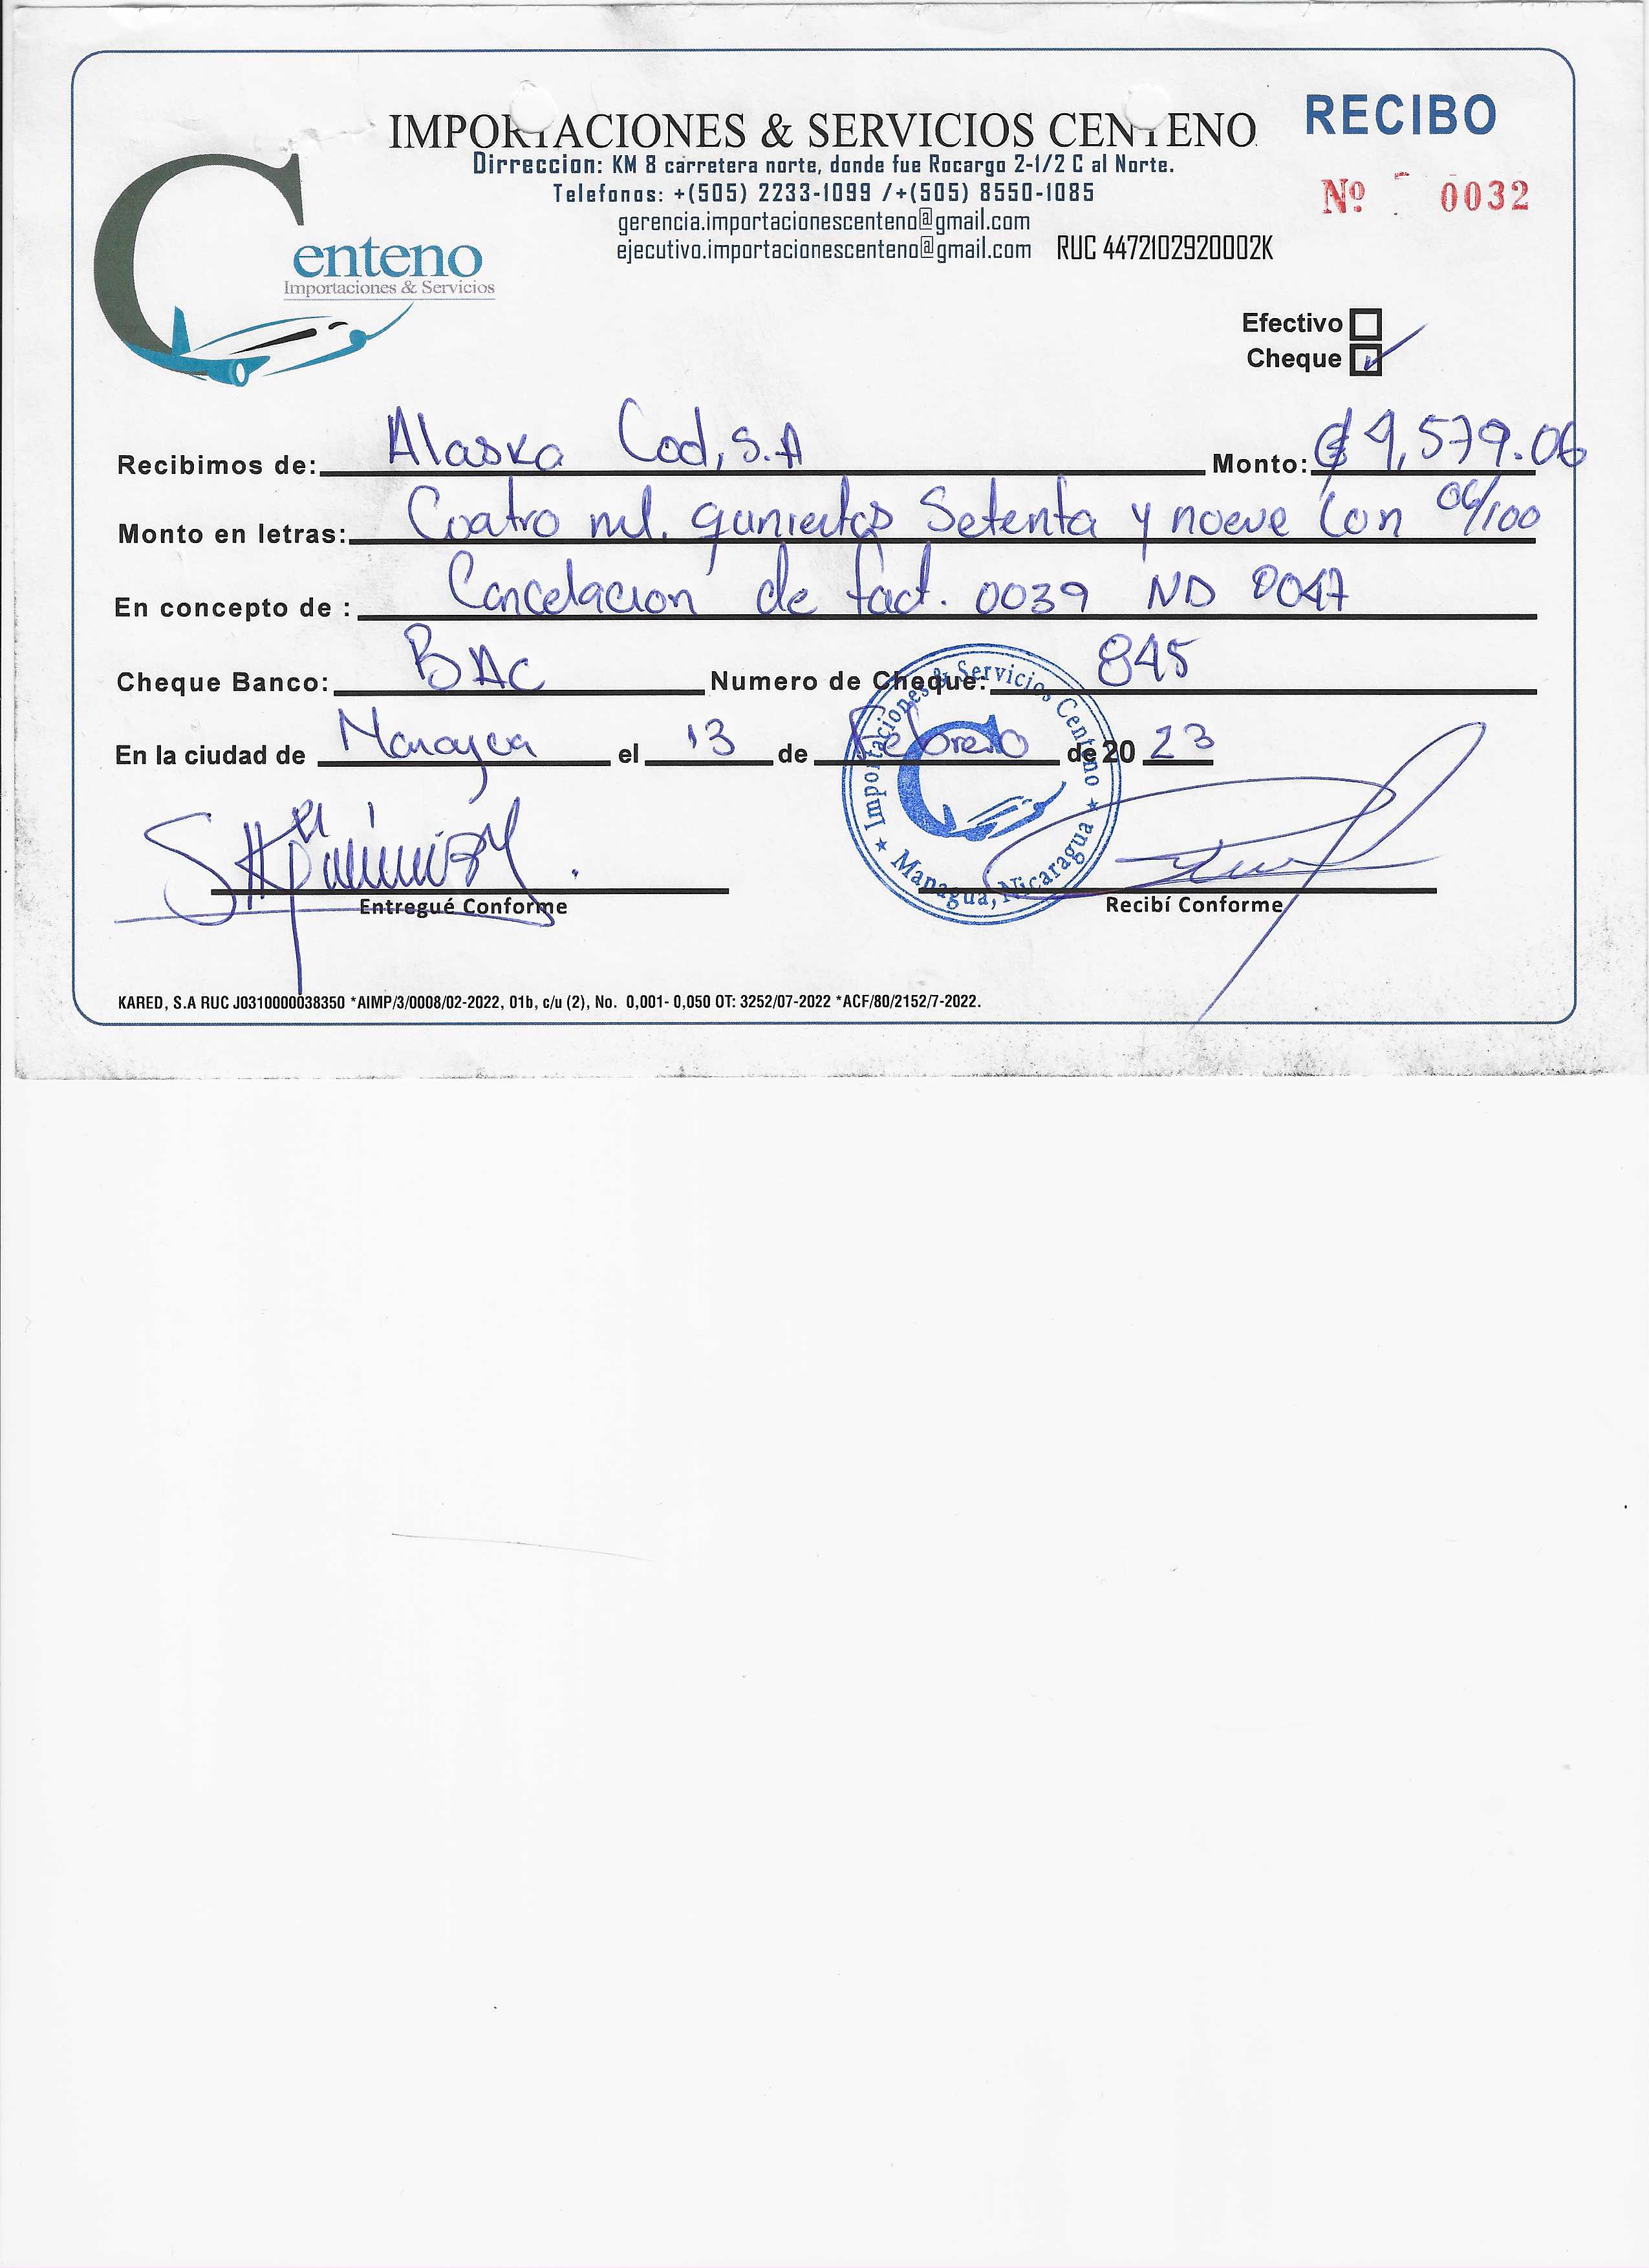 IMPORTACIONES & SERVICIOS CENTENO
RECIBO
Dirreccion: KM 8 carretera norte, donde fue Rocargo 2-1/2 C al Norte.
Telefonos: +(505) 2233-1099 /+(505) 8550-1085
Nº 0032
gerencia.importacionescenteno@gmail.com
ejecutivo.importacionescenteno@gmail.com RUC 4472102920002K
Centeno
Importaciones & Servicios
Efectivo
Cheque
Recibimos de: Alaska Cod, S.A Monto: ₡ 4,579.06
Monto en letras: Cuatro mil. quinientos Setenta y nueve con 06/100
En concepto de : Cancelacion de fact. 0039 ND 0047
Cheque Banco: BAC Numero de Cheque: 845
En la ciudad de Managua el 13 de Febrero de 20 23
Importaciones & Servicios Centeno
Managua, Nicaragua
Entregué Conforme Recibí Conforme
KARED, S.A RUC J0310000038350 *AIMP/3/0008/02-2022, 01b, c/u (2), No. 0,001- 0,050 OT: 3252/07-2022 *ACF/80/2152/7-2022.